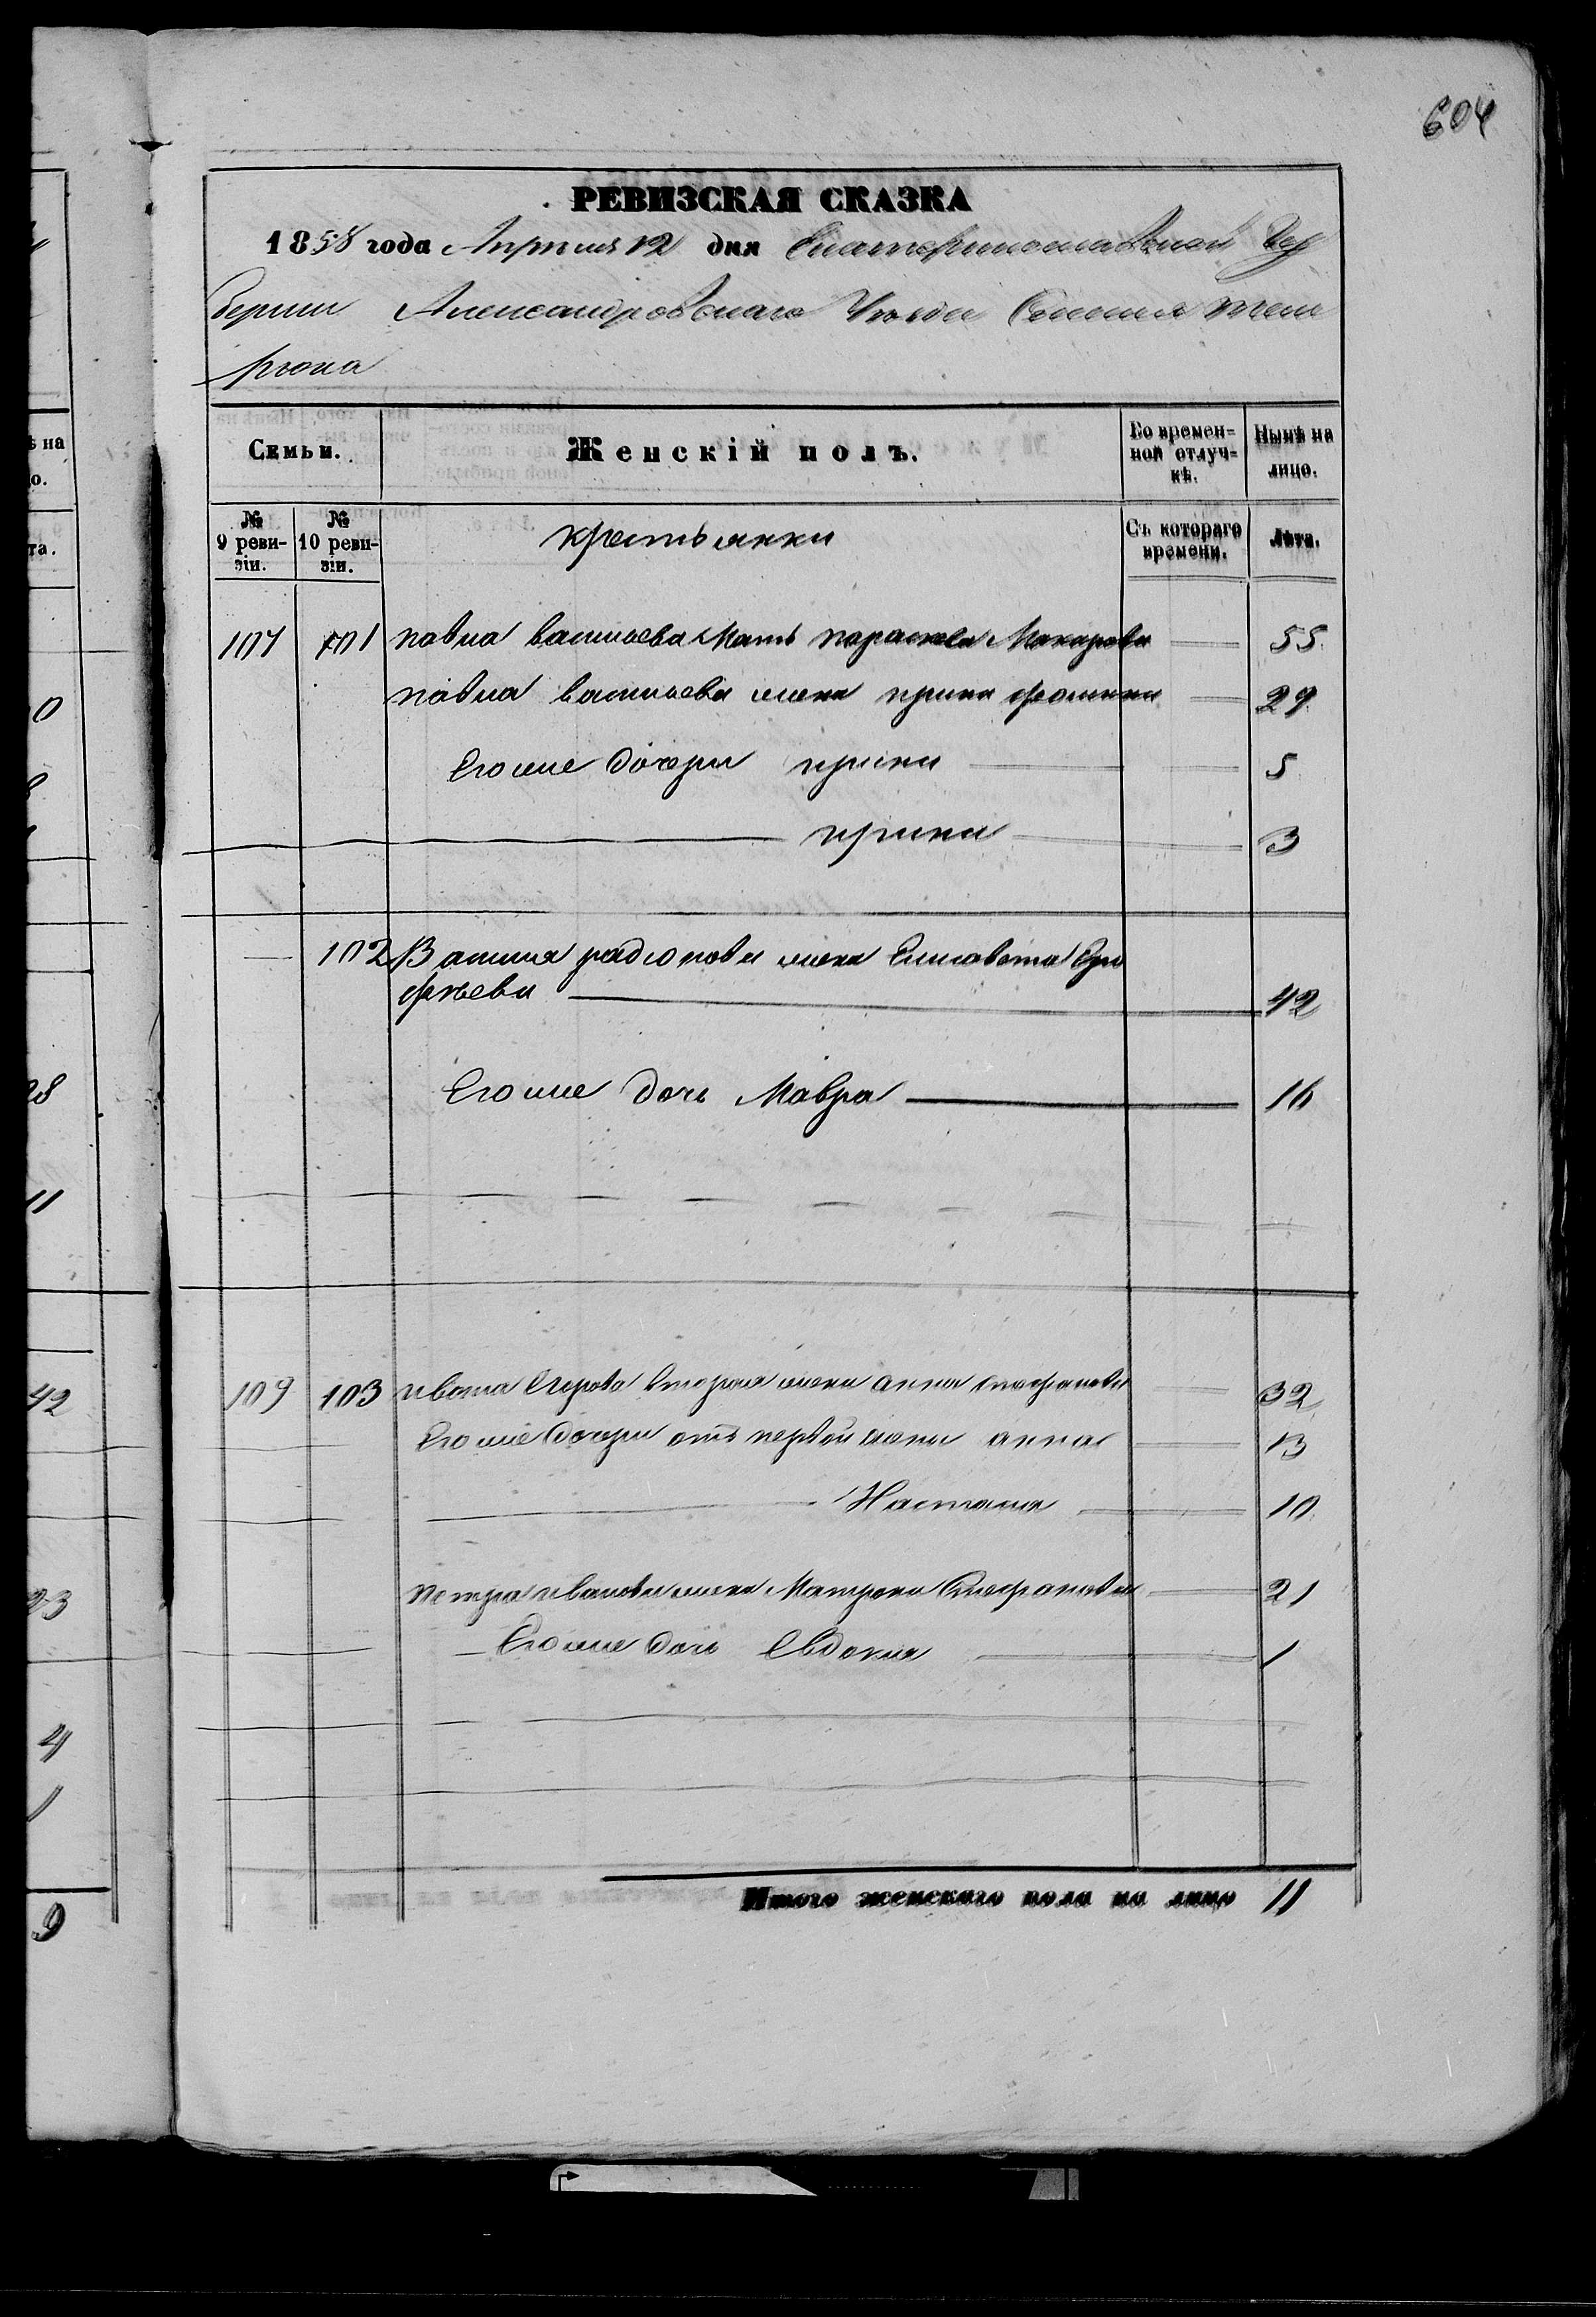 604
РЕВИЗСКАЯ СКАЗКА
1858 года Апреля 12 дня Екатеринославской Гу
бернии Александровскаго Уезда Селения Тем
рюка
Семьи. Женскій полъ. Во времен= ной отлуч= кѣ. Нынѣ на лицо.
№ 9 реви- зіи. № 10 реви- зіи. крестьянки Съ котораго времени. Лѣта.
107 101 павла васильева Мать параскева Макарова 55
павла васильева жена ирина фомина 29
Его же дочери ирина 5
ирина 3
102 Василия радионова жена Елисавета Еро
фѣева 42
Его же дочь Мавра 16
109 103 ивана Егорова вторая жена анна стефанова 32
Его же дочери отъ первой жены анна 13
Настасия 10
петра иванова жена Матрена Стефанова 21
Его же дочь Евдокия 1
Итого женскаго пола на лицо 11
ѣ на
о.
та.
0
8
28
11
42
23
4
1
9